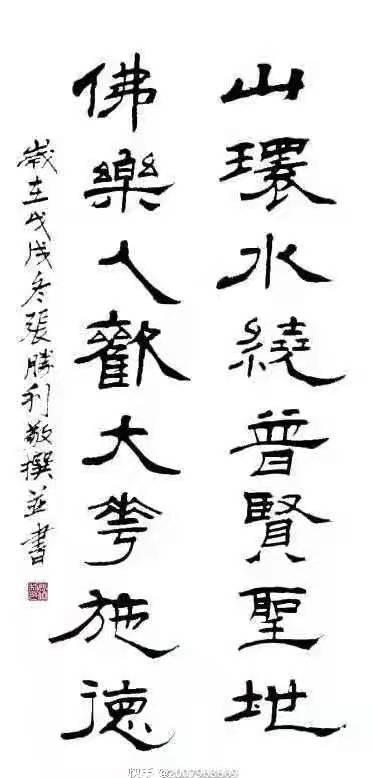 山環水繞普賢聖地
佛樂人歡大華施德
歲在戊戌冬張勝利敬撰並書